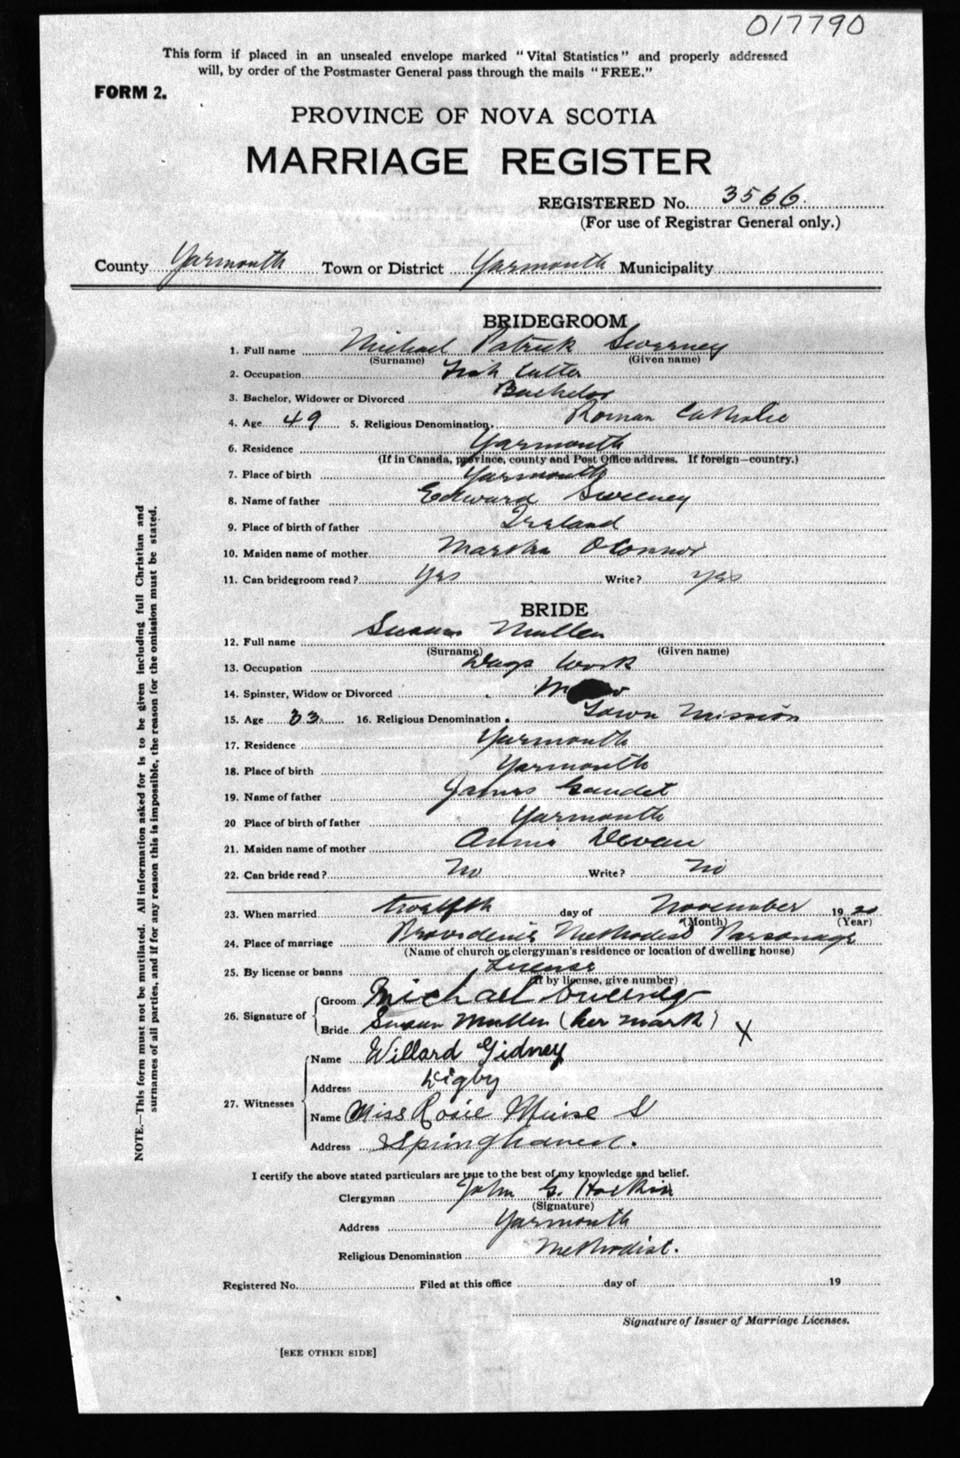 017790
This form if placed in an unsealed envelope marked "Vital Statistics" and properly addressed
will, by order of the Postmaster General pass through the mails "FREE."
FORM 2.
PROVINCE OF NOVA SCOTIA
MARRIAGE REGISTER
REGISTERED No. 3566.
(For use of Registrar General only.)
County Yarmouth Town or District Yarmouth Municipality
BRIDEGROOM
1. Full name Michael Patrick Sweeney
(Surname) (Given name)
2. Occupation Fish Cutter
3. Bachelor, Widower or Divorced Bachelor
4. Age 49 5. Religious Denomination. Roman Catholic
6. Residence Yarmouth
(If in Canada, province, county and Post Office address. If foreign—country.)
7. Place of birth Yarmouth
8. Name of father Edward Sweeney
9. Place of birth of father Ireland
10. Maiden name of mother Martha O'Connor
11. Can bridegroom read? Yes Write? yes
BRIDE
12. Full name Susan Mullen
(Surname) (Given name)
13. Occupation Days Work
14. Spinster, Widow or Divorced
15. Age 33 16. Religious Denomination Town Mission
17. Residence Yarmouth
18. Place of birth Yarmouth
19. Name of father James Gaudet
20 Place of birth of father Yarmouth
21. Maiden name of mother Annie
22. Can bride read? No Write? No
23. When married twelfth day of November 1920
(Month) (Year)
24. Place of marriage Providence Methodist Parsonage
(Name of church or clergyman's residence or location of dwelling house)
25. By license or banns License
(If by license, give number)
26. Signature of
Groom Michael Sweeney
Bride Susan Mullen (her mark) X
27. Witnesses
Name Willard Gidney
Address Digby
Name Miss Rosie Muise S
Address Springhaven.
I certify the above stated particulars are true to the best of my knowledge and belief.
Clergyman John G. Hockin
(Signature)
Address Yarmouth
Religious Denomination Methodist.
Registered No. Filed at this office day of 19
Signature of Issuer of Marriage Licenses.
[SEE OTHER SIDE]
NOTE.—This form must not be mutilated. All information asked for is to be given including full Christian and
surnames of all parties, and if for any reason this is impossible, the reason for the omission must be stated.